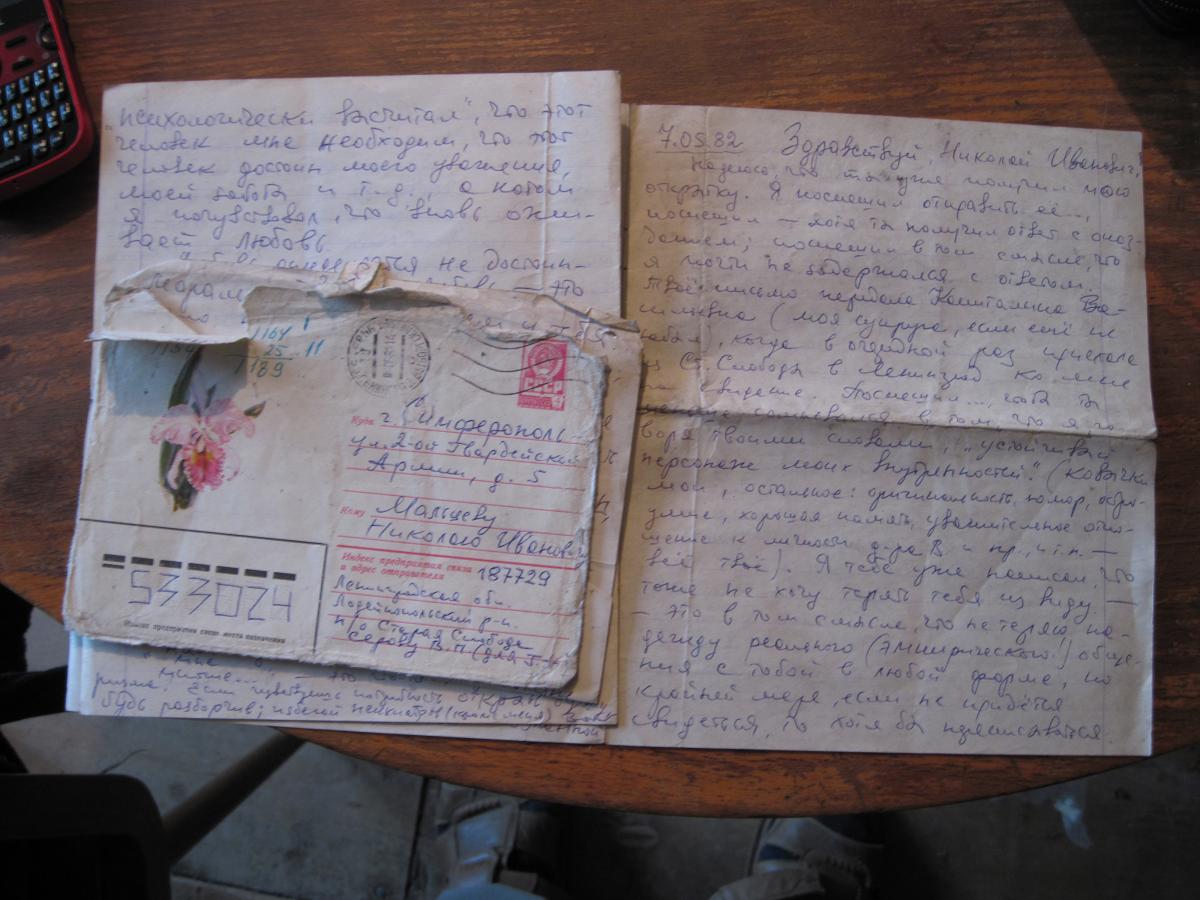 психологически высчитал", что этот
человек мне необходим, что этот
человек достоин моего уважения,
моей заботы и т.д., а потом
я почувствовал, что вновь ожи-
вает любовь
не достоин-
это
1164
25
1189
11
СССР
Куда г. Симферополь
ул. 2-ой Гвардейской
Армии, д. 5
Кому Мальцеву
Николаю Иванов
Индекс предприятия связи
и адрес отправителя 187729
Ленинградская обл.
Лодейнопольский р-н.
п/о Старая Слобода
Серову В.П. (для
533024
Индекс предприятия связи места назначения
это
Если чувствуешь потребность
будь разборчив; избегай психиатров (кроме меня)
7.05.82 Здравствуй, Николай Иванович!
Надеюсь, что ты уже получил мою
открытку. Я поспешил отправить её...,
поспешил — хотя ты получил ответ с опоз-
данием; поспешил в том смысле, что
я почти не задержался с ответом.
Твоё письмо передала Капитолина Ва-
сильевна (моя супруга, если ещё не
забыл), когда в очередной раз приехала
из Ст. Слободы в Ленинград ко мне
на свидание. Поспешил..., чтобы ты
меньше сомневался в том, что я, го-
воря твоими словами, "устойчивый
персонаж моих внутренностей". (Кавычки
мои, остальное: оригинальность, юмор, остро-
умие, хорошая память, уважительное отно-
шение к личности д-ра В. и пр., и т.п. —
всё твоё). Я тебе уже написал, что
тоже не хочу терять тебя из виду. —
— Это в том смысле, что не теряю на-
дежду реального (эмпирического) обще-
ния с тобой в любой форме, по
крайней мере, если не придётся
свидеться, то хотя бы переписываться.